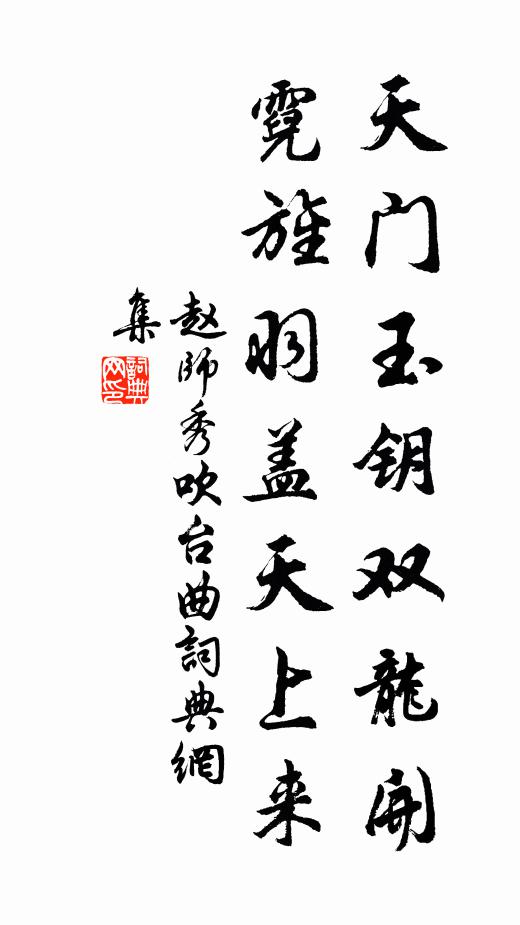 天门玉钥双龍開
霓旌羽盖天上来
赵師秀吹台曲詞典網
集
詞典
网印